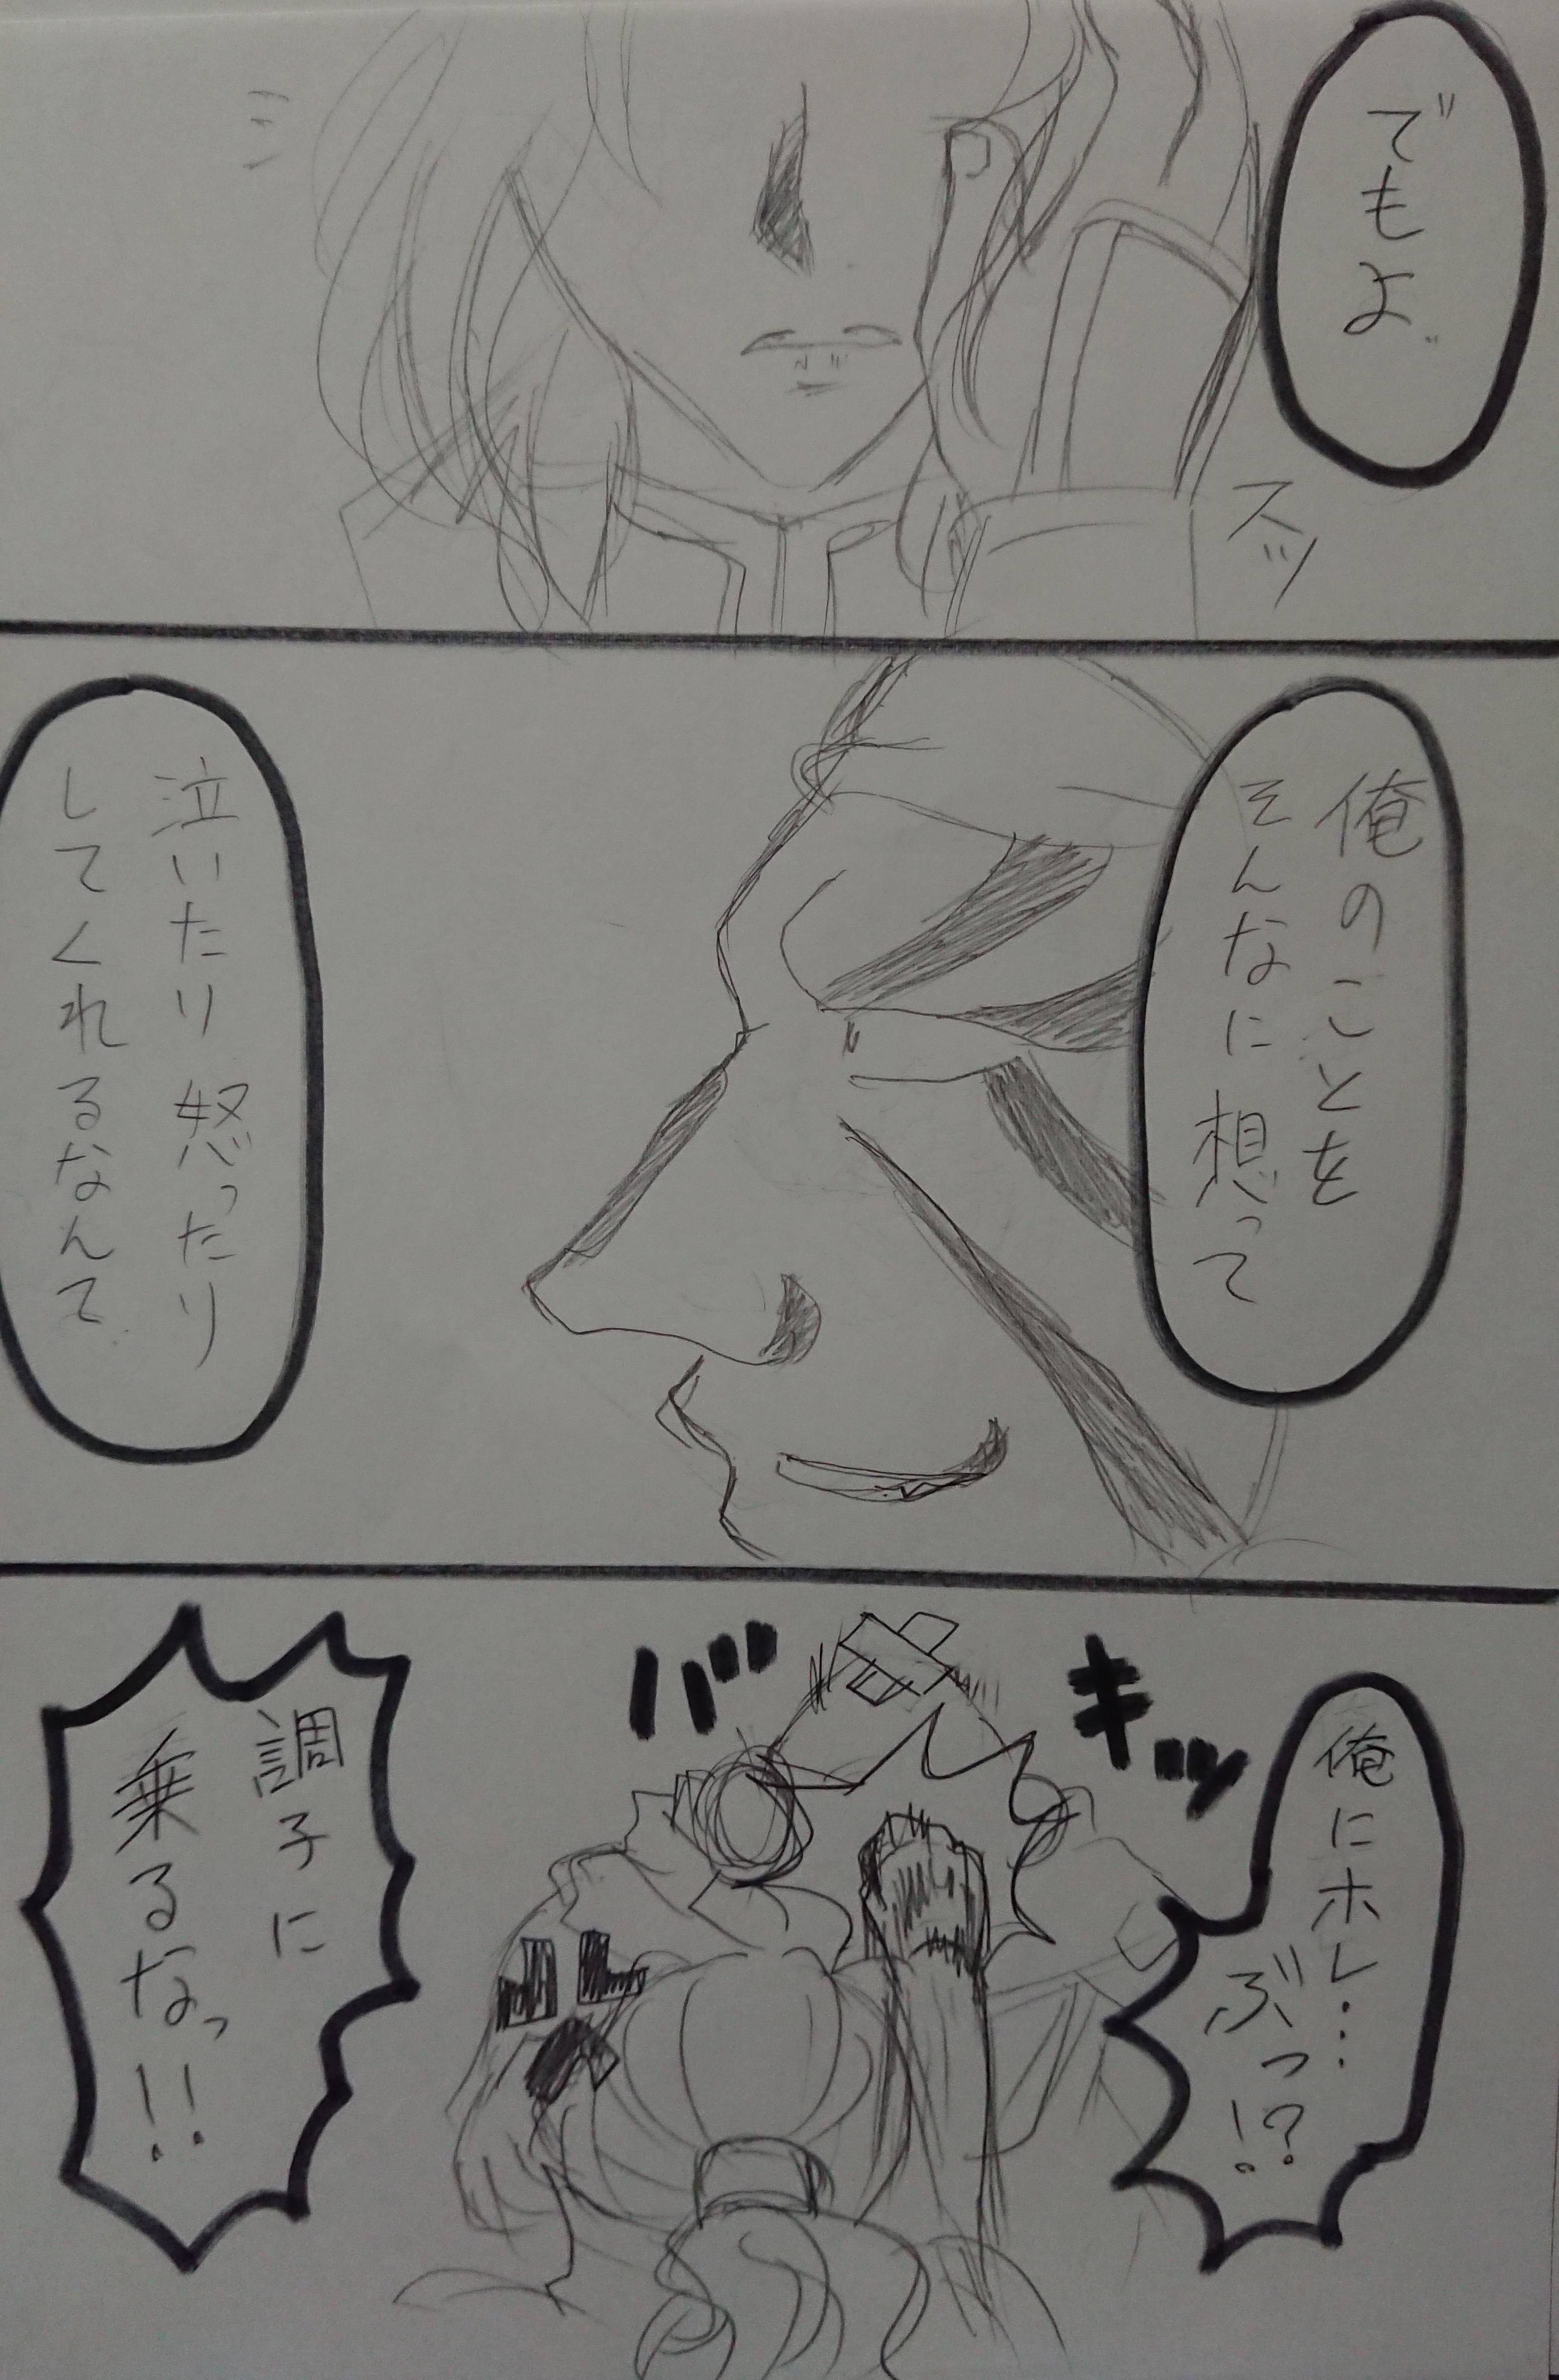 でもよ
スッ
俺のことを
そんなに想って
泣いたり怒ったり
してくれるなんて
俺にホレ…
ぶっ!?
バキッ
調子に
乗るなっ!!